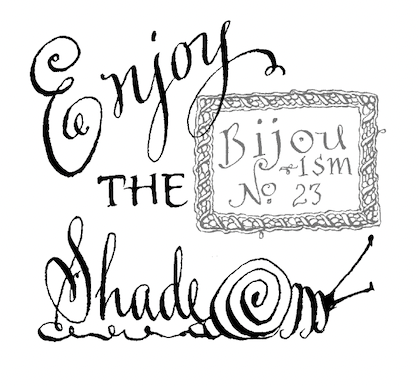 Enjoy
THE
Shade
Bijou
-ism
No 23